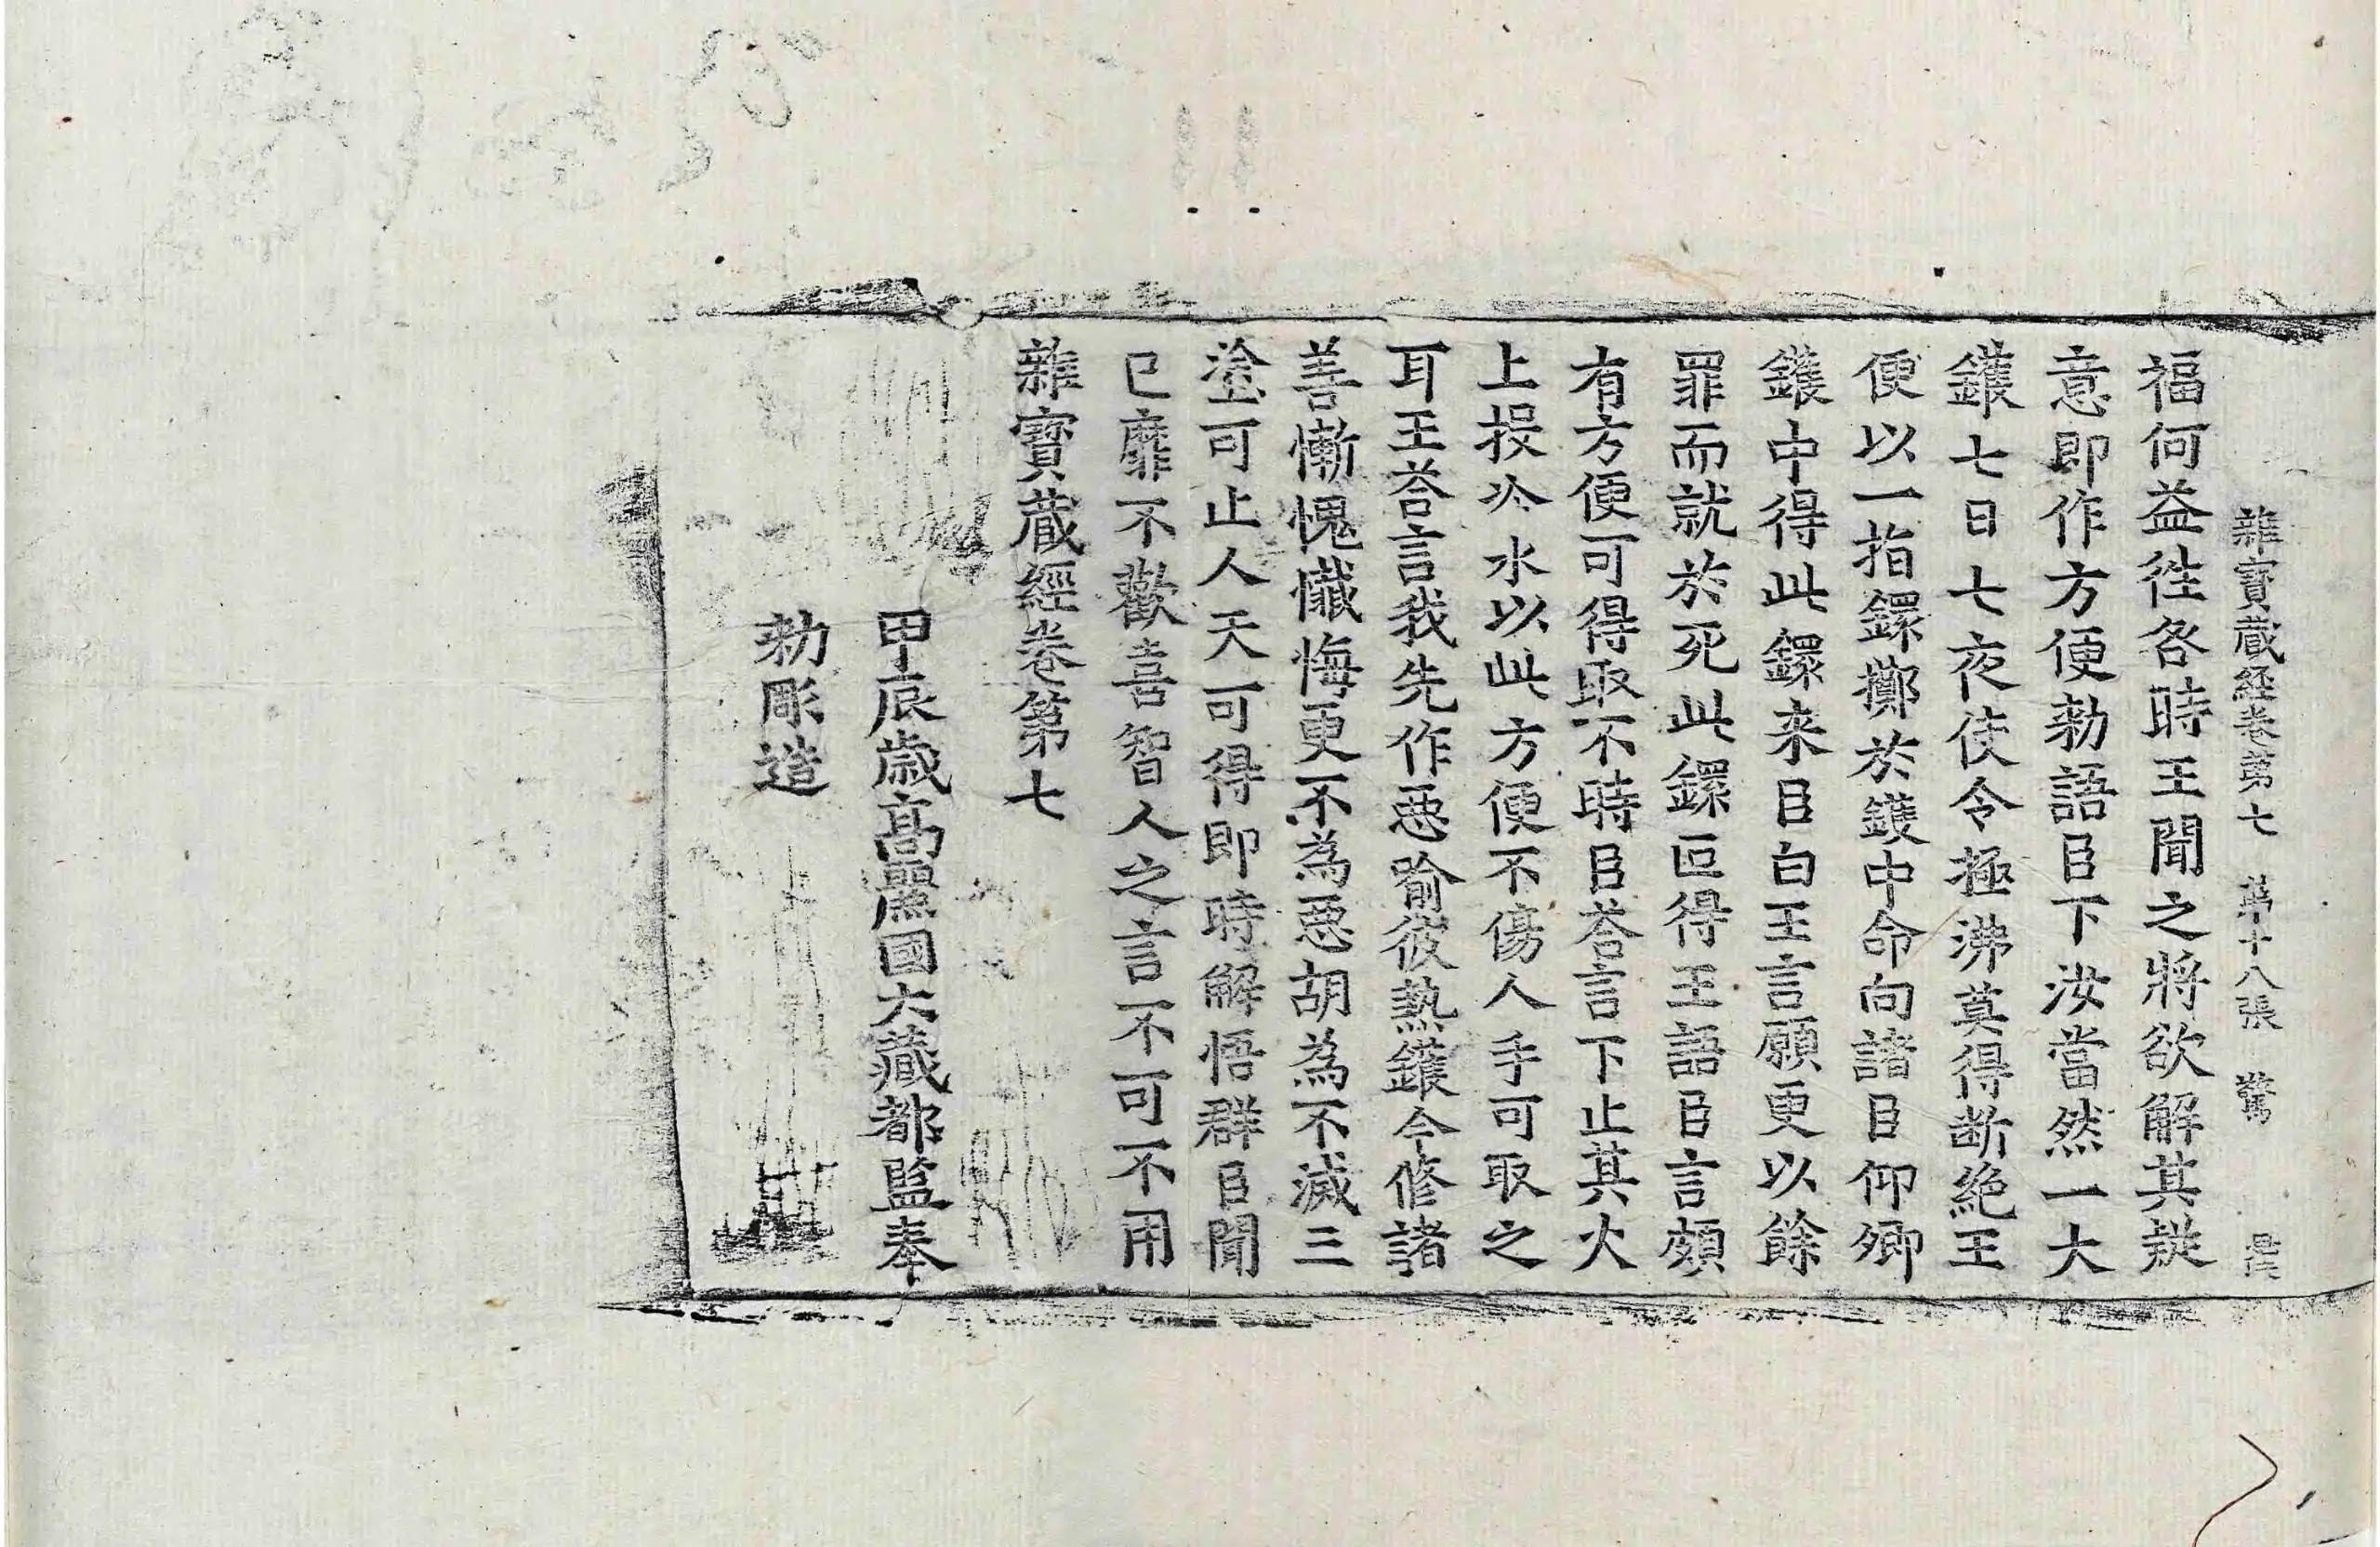 雜寶蔵経卷第七　第十八張　驚
福何益徃各時王聞之將欲解其疑
意即作方便勑語臣下汝當然一大
鑊七日七夜使令極沸莫得断絶王
便以一指鐶擲於鑊中命向諸臣仰卿
鑊中得此鐶来臣白王言願更以餘
罪而就於死此鐶叵得王語臣言頗
有方便可得取不時臣荅言下止其火
上投冷水以此方便不傷人手可取之
耳王荅言我先作惡喻彼熱鑊今修諸
善慚愧懺悔更不為惡胡為不滅三
塗可止人天可得即時解悟群臣聞
已靡不歡喜智人之言不可不用
雜寶蔵經卷第七
甲辰歳高麗國大藏都監奉
勑彫造